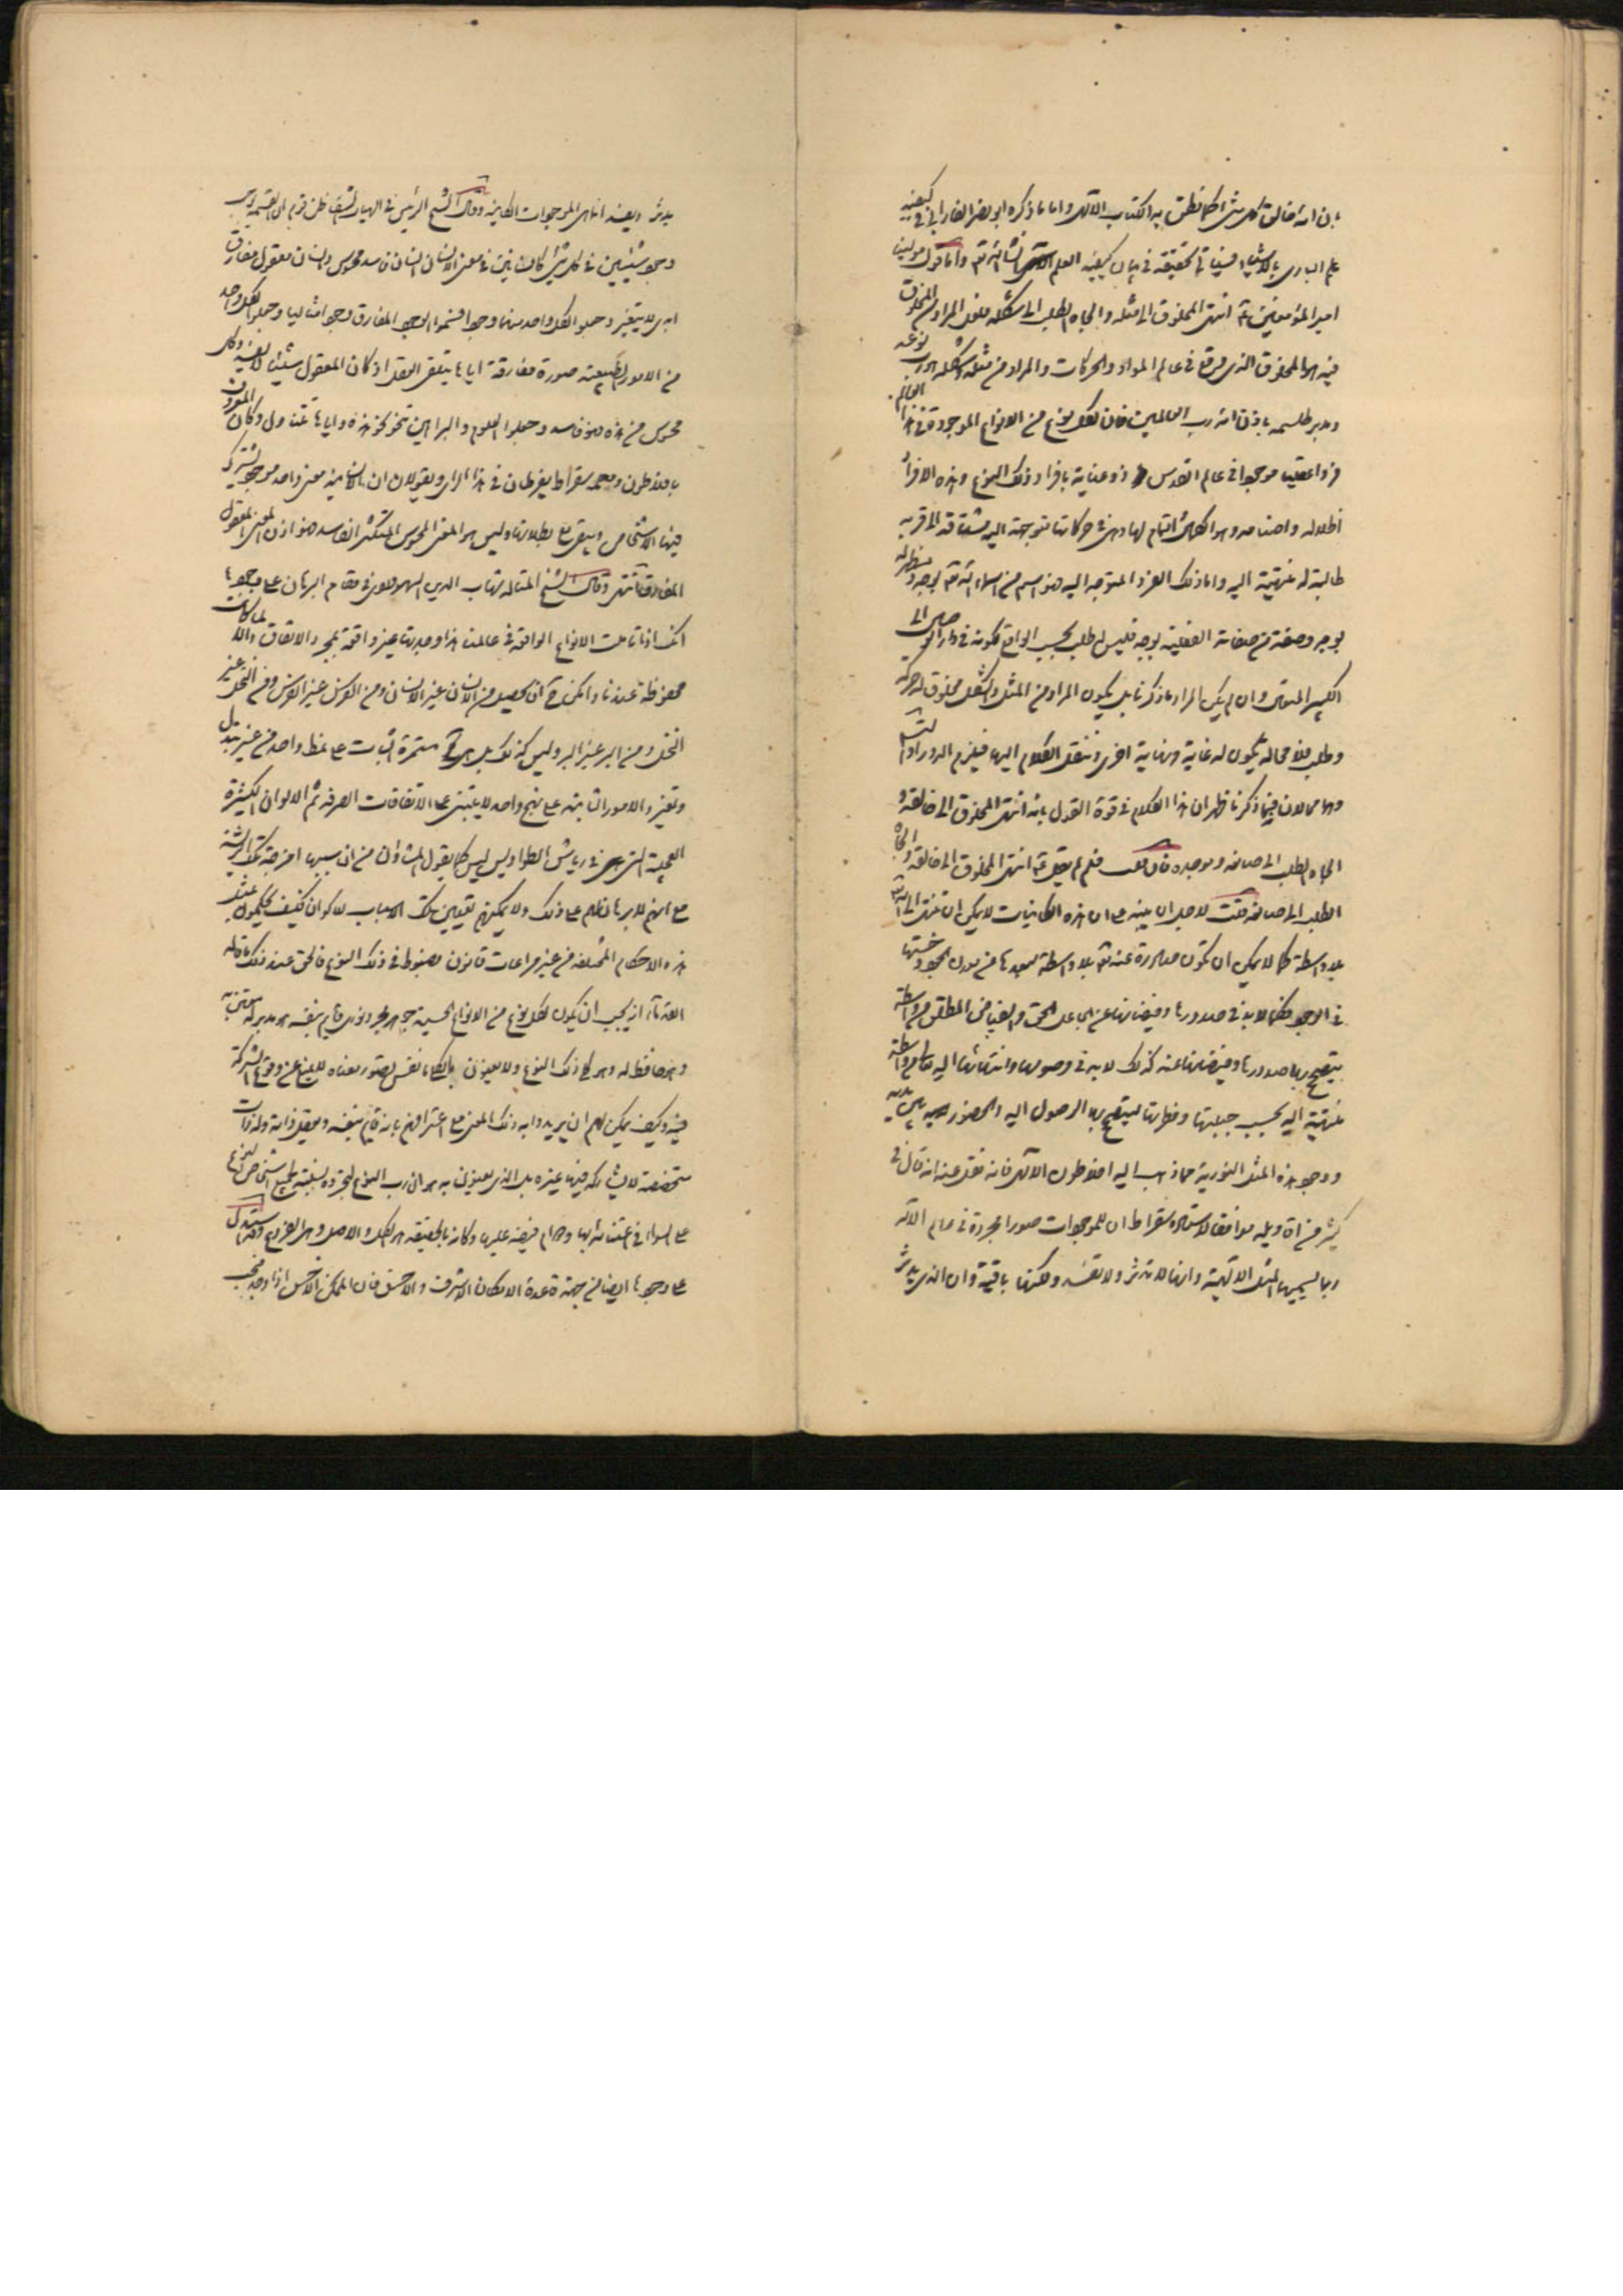 بان الله خالق كل شئ كما نطق به الكتاب الالهى واما ما ذكره ابو نصر الفارابى فى كيفية
علم البارى بالاشياء فسيأتى تحقيقه فى بيان كيفية العلم انشاء الله تم واما قول مولينا
امير المؤمنين ع انتهى المخلوق الى مثله والجاه الطلب الى شكله فلعل المراد من المخلوق
فيه هو المخلوق الذى وقع فى عالم المواد والحركات والمراد من مثله وشكله هو رب نوعه
ومدبر طلسمه باذن الله رب العالمين فان لكل نوع من الانواع الموجودة فى هذا العالم
فردا عقليا موجودا فى عالم القدس ذو عناية بافراد ذلك النوع وهذه الافراد
اظلاله واصنامه وهو الكمال التام لها وهى فى حركاتها متوجهة اليه مشتاقة الى قربه
طالبة له منتهية اليه واما ذلك الفرد المتوجه اليه فهو اسم من اسماء الله تم بوجه ومظهر له
بوجه وصفة من صفاته الفعلية بوجه فليس له طلب بحسب الواقع لكونه فى دار
الكبير المتعال وان لم يكن المراد ما ذكرنا بل يكون المراد من المثل والشكل مخلوق له حركة
وطلب فلا محالة يكون له غاية ونهاية اخرى وننقل الكلام اليها فيلزم الدور او التسلسل
وهما محالان فيما ذكرنا ظهر ان هذا الكلام فى قوة القول بانه انتهى المخلوق الى خالقه و
الجاه الطلب الى صانعه وموجده فان قلت فلم لم يقل ع انتهى المخلوق الى خالقه والجاه
الطلب الى صانعه قلت لاجل ان ينبه على ان هذه الكاينات لا يمكن ان تنتهى الى الله
بلا واسطة كما لا يمكن ان تكون صادرة عنه تم بلا واسطة لبعدها من الوجود وخستها
فى الوجود فكما لا بد فى صدورها وفيضانها عن الجاعل الحق والفياض المطلق من واسطة
يتصحح بها صدورها وفيضانها عنه كذلك لا بد فى وصولها وانتهائها اليه تعالى من واسطة
منتهية اليه بحسب جبلتها وفطرتها ليتصحح بها الوصول اليه والحضور بين يديه
ووجود هذه المثل النورية مما ذهب اليه افلاطون الالهى فانه نقل عنه انه قال فى
كثير من اقاويله موافقا لاستاده سقراط ان للموجودات صورا مجردة فى عالم الاله
ربما يسميها المثل الالهية وانها لا تدثر ولا تفسد ولكنها باقية وان الذى يدثر
يدثر ويفسد انما هى الموجودات الكاينة وقال الشيخ الرئيس فى الهيات الشفا ظن قوم ان القسمة توجب
وجود شيئين فى كل شئ كانسانين فى معنى الانسان انسان فاسد محسوس وانسان معقول مفارق
ابدى لا يتغير وجعلوا لكل واحد منهما وجودا فسموا الوجود المفارق وجودا مثاليا وجعلوا لكل واحد
من الامور الطبيعية صورة مفارقة اياها يتلقى العقل اذ كان المعقول شيئا لا يفسد وكل
محسوس من هذه فهو فاسد وجعلوا العلوم والبراهين تنحو نحو هذه واياها تتناول وكان المعروف
بافلاطون ومعلمه سقراط يفرطان فى هذا الراى ويقولان ان للانسانية معنى واحد موجود يشترك
فيها الاشخاص ويبقى مع بطلانها وليس هو المعنى المحسوس المتكثر الفاسد فهو اذن المعنى المعقول
المفارق انتهى وقال الشيخ المتاله شهاب الدين السهروردى فى مقام البرهان على وجودها
انك اذا تاملت الانواع الواقعة فى عالمنا هذا وجدتها غير واقعة بمجرد الاتفاق والا لما كانت
محفوظة عندنا وامكن ح ان يحصل من الانسان غير الانسان ومن الفرس غير الفرس ومن النخل غير
النخل ومن البر غير البر وليس كذلك بل هى مستمرة الثبات على نمط واحد من غير تبدل
وتغير والامور الثابتة على نهج واحد لا يبتنى على الاتفاقات الصرفة ثم الالوان الكثيرة
العجيبة التى فى رياش الطواويس ليس كما يقول المشاؤن من ان سببها امزجة تلك الريشة
مع انهم لا برهان لهم على ذلك ولا يمكنهم تعيين تلك الاسباب للالوان فكيف يحكمون بمثل
هذه الاحكام المختلفة من غير مراعات قانون مضبوط فى ذلك النوع فالحق عند ذلك ما قاله
القدماء انه يجب ان يكون لكل نوع من الانواع الحسية جوهر مجرد نورى قايم بنفسه هو مدبر له معتن به
وحافظ له وهو كلى ذلك النوع ولا يعنون بالكلى ما نفس تصور معناه لا يمنع عن وقوع الشركة
فيه وكيف يمكن لهم ان يريدوا به ذلك المعنى مع اعترافهم بانه قايم بنفسه ويعقل ذاته وله ذات
متخصصة لا يشاركه فيها غيره بل الذى يعنون به هو ان رب النوع لتجرده نسبته الى جميع اشخاص النوع
على السواء فى اعتنائه بها ودوام فيضه عليها وكانه بالحقيقة هو الكل والاصل وهى الفروع وقد استدل
على وجودها ايضا من جهة قاعدة الامكان الاشرف والاخس فان الممكن الاخس اذا وجد فيجب